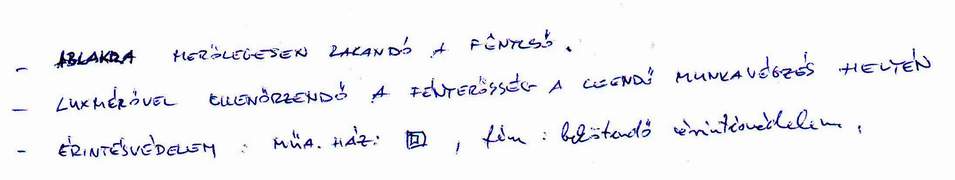 - ABLAKRA MERŐLEGESEN RAKANDÓ A FÉNYCSŐ.
- LUXMÉRŐVEL ELLENŐRZENDŐ A FÉNYERŐSSÉG A LEENDŐ MUNKAVÉGZÉS HELYÉN
- ÉRINTÉSVÉDELEM : MŰA. HÁZ: , fém : bekötendő érintésvédelem.